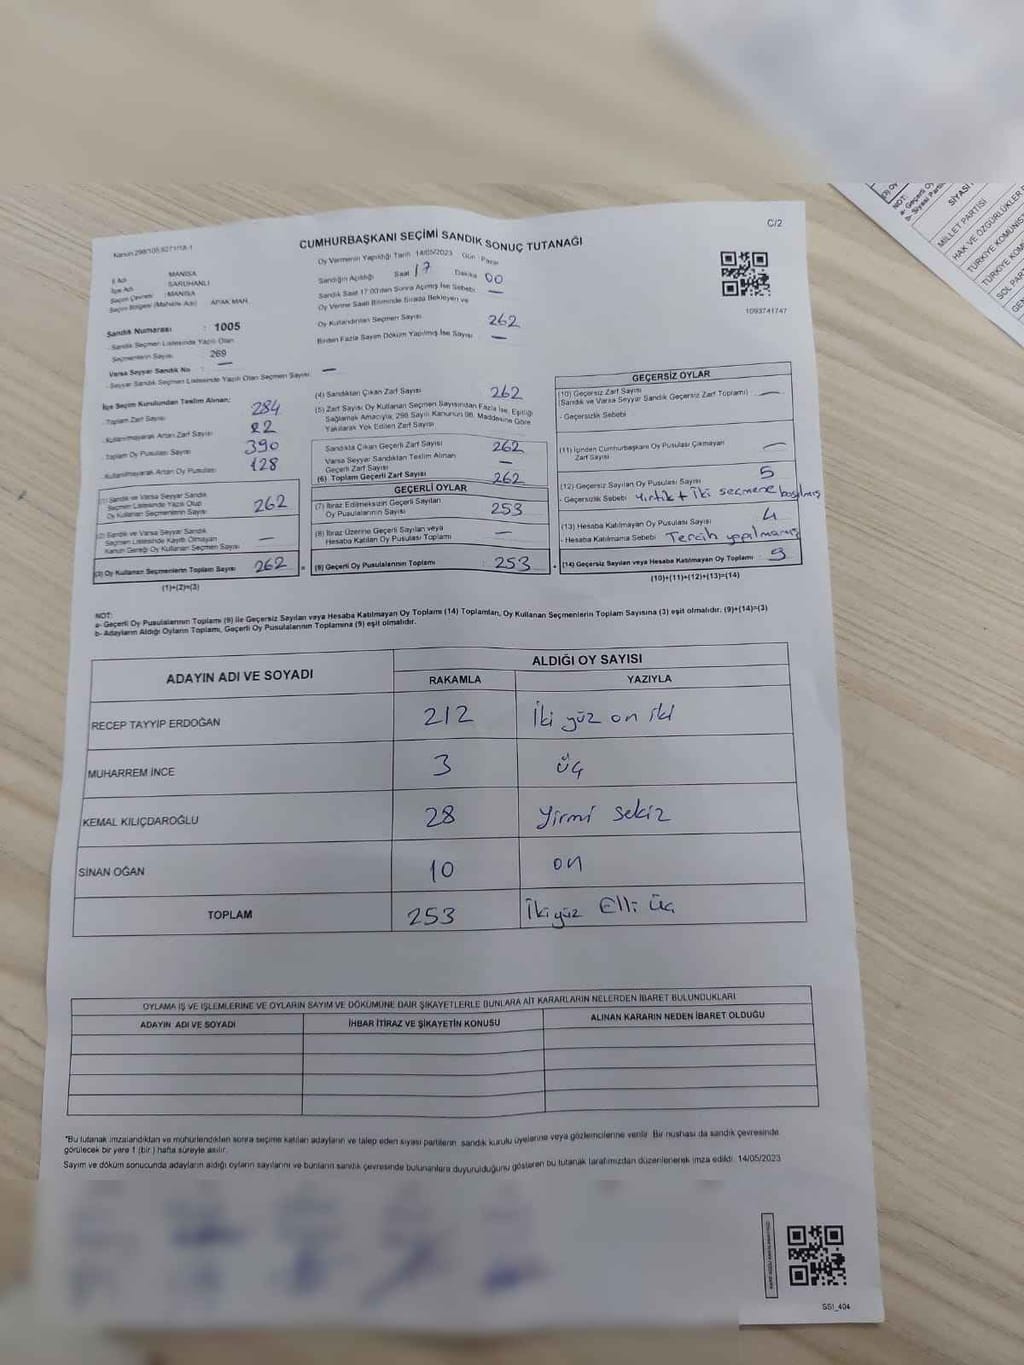 C/2
Kanun:298/105,6271/18-1
CUMHURBAŞKANI SEÇİMİ SANDIK SONUÇ TUTANAĞI
1093741747
İl Adı : MANİSA
İlçe Adı : SARUHANLI
Seçim Çevresi : MANİSA
Seçim Bölgesi (Mahalle Adı) APAK MAH.
Sandık Numarası : 1005
- Sandık Seçmen Listesinde Yazılı Olan
Seçmenlerin Sayısı 269
Varsa Seyyar Sandık No : —
- Seyyar Sandık Seçmen Listesinde Yazılı Olan Seçmen Sayısı: —
Oy Vermenin Yapıldığı Tarih 14/05/2023 Gün : Pazar
Sandığın Açıldığı Saat 17 Dakika 00
Sandık Saat 17.00'den Sonra Açılmış İse Sebebi —
Oy Verme Saati Bitiminde Sırada Bekleyen ve
Oy Kullandırılan Seçmen Sayısı 262
Birden Fazla Sayım Döküm Yapılmış İse Sayısı —
İlçe Seçim Kurulundan Teslim Alınan:
- Toplam Zarf Sayısı 284
- Kullanılmayarak Artan Zarf Sayısı 22
- Toplam Oy Pusulası Sayısı 390
- Kullanılmayarak Artan Oy Pusulası 128
(1) Sandık ve Varsa Seyyar Sandık
Seçmen Listesinde Yazılı Olup
Oy Kullanan Seçmenlerin Sayısı 262
(2) Sandık ve Varsa Seyyar Sandık
Seçmen Listesinde Kayıtlı Olmayan
Kanun Gereği Oy Kullanan Seçmen Sayısı —
(3) Oy Kullanan Seçmenlerin Toplam Sayısı 262
(1)+(2)=(3)
(4) Sandıktan Çıkan Zarf Sayısı 262
(5) Zarf Sayısı Oy Kullanan Seçmen Sayısından Fazla İse, Eşitliği
Sağlamak Amacıyla, 298 Sayılı Kanunun 98. Maddesine Göre
Yakılarak Yok Edilen Zarf Sayısı
Sandıkta Çıkan Geçerli Zarf Sayısı 262
Varsa Seyyar Sandıktan Teslim Alınan
Geçerli Zarf Sayısı —
(6) Toplam Geçerli Zarf Sayısı 262
GEÇERLİ OYLAR
(7) İtiraz Edilmeksizin Geçerli Sayılan
Oy Pusulalarının Sayısı 253
(8) İtiraz Üzerine Geçerli Sayılan veya
Hesaba Katılan Oy Pusulası Toplamı —
(9) Geçerli Oy Pusulalarının Toplamı : 253
GEÇERSİZ OYLAR
(10) Geçersiz Zarf Sayısı
(Sandık ve Varsa Seyyar Sandık Geçersiz Zarf Toplamı) —
- Geçersizlik Sebebi
(11) İçinden Cumhurbaşkanı Oy Pusulası Çıkmayan
Zarf Sayısı —
(12) Geçersiz Sayılan Oy Pusulası Sayısı 5
- Geçersizlik Sebebi Yırtık + İki seçmene basılmış
(13) Hesaba Katılmayan Oy Pusulası Sayısı 4
- Hesaba Katılmama Sebebi Tercih yapılmamış
(14) Geçersiz Sayılan veya Hesaba Katılmayan Oy Toplamı : 9
(10)+(11)+(12)+(13)=(14)
NOT:
a- Geçerli Oy Pusulalarının Toplamı (9) ile Geçersiz Sayılan veya Hesaba Katılmayan Oy Toplamı (14) Toplamları, Oy Kullanan Seçmenlerin Toplam Sayısına (3) eşit olmalıdır. (9)+(14)=(3)
b- Adayların Aldığı Oyların Toplamı, Geçerli Oy Pusulalarının Toplamına (9) eşit olmalıdır.
ADAYIN ADI VE SOYADI
ALDIĞI OY SAYISI
RAKAMLA YAZIYLA
RECEP TAYYIP ERDOĞAN 212 İki yüz on iki
MUHARREM İNCE 3 üç
KEMAL KILIÇDAROĞLU 28 Yirmi sekiz
SİNAN OĞAN 10 on
TOPLAM 253 İki yüz Elli Üç
OYLAMA İŞ VE İŞLEMLERİNE VE OYLARIN SAYIM VE DÖKÜMÜNE DAİR ŞİKAYETLERLE BUNLARA AİT KARARLARIN NELERDEN İBARET BULUNDUKLARI
ADAYIN ADI VE SOYADI İHBAR İTİRAZ VE ŞİKAYETİN KONUSU ALINAN KARARIN NEDEN İBARET OLDUĞU
"Bu tutanak imzalandıktan ve mühürlendikten sonra seçime katılan adayların ve talep eden siyasi partilerin sandık kurulu üyelerine veya gözlemcilerine verilir. Bir nüshası da sandık çevresinde
görülecek bir yere 1 (bir ) hafta süreyle asılır.
Sayım ve döküm sonucunda adayların aldığı oyların sayılarını ve bunların sandık çevresinde bulunanlara duyurulduğunu gösteren bu tutanak tarafımızdan düzenlenerek imza edildi. 14/05/2023
SSI_404
NOT:
SİYASİ
MİLLET PARTİSİ
HAK VE ÖZGÜRLÜKLER
TÜRKİYE KOMÜNİS
TÜRKİYE KOM
SOL PAR